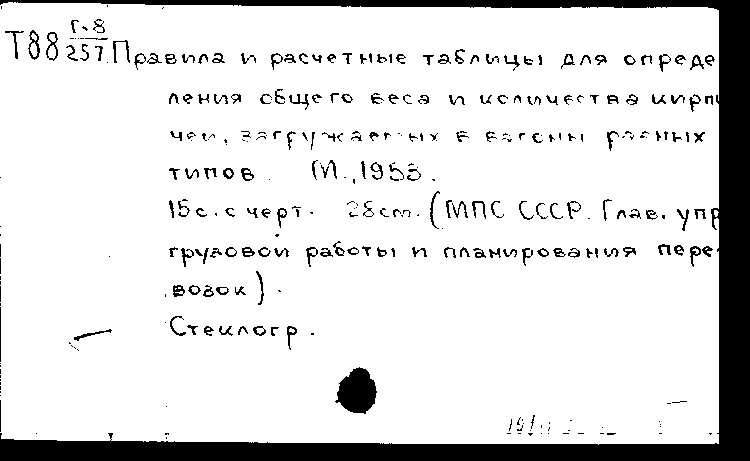 Т88 Г-8/257 Правила и расчетные таблицы для опреде
ления общего веса и количества кирпи
чей, загружаемых в вагоны разных
типов. М., 1953.
15 с. с черт. 28 cm. (МПС СССР. Глав. упр
грузовой работы и планирования пере-
возок).
Стеклогр.